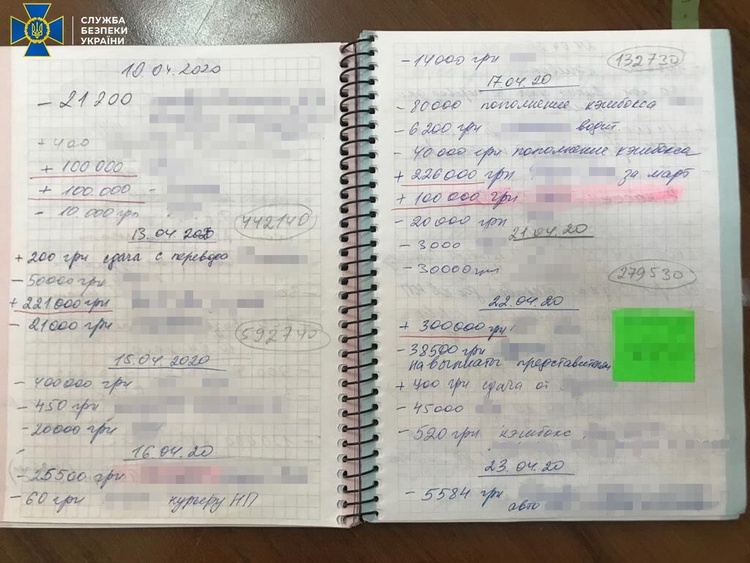 СЛУЖБА
БЕЗПЕКИ
УКРАЇНИ
10.04.2020
- 21200
+ 400
+ 100 000
+ 100.000 -
- 10.000грн
442140
13.04.2020
+ 200 грн сдача с перевода
- 50000грн
+ 221 000грн
- 21000 грн
592740
15.04.2020
- 400000 грн
- 450 грн
- 20000 грн
16.04.20
- 25500 грн
- 60 грн курьеру НП
- 14000 грн
132730
17.04.20
- 80000 пополнение кэшбокса
- 6200 грн водит.
- 40000 грн пополнение кэшбокса
+ 226000 грн за март
+ 100 000 грн
- 20000 грн
21.04.20
- 3000
- 30000грн
279530
22.04.20
+ 300000грн
- 38500 грн
на выплаты представителям
+ 400 грн сдача от
- 45000
- 520 грн кэшбокс
23.04.20
- 5584 грн
авто